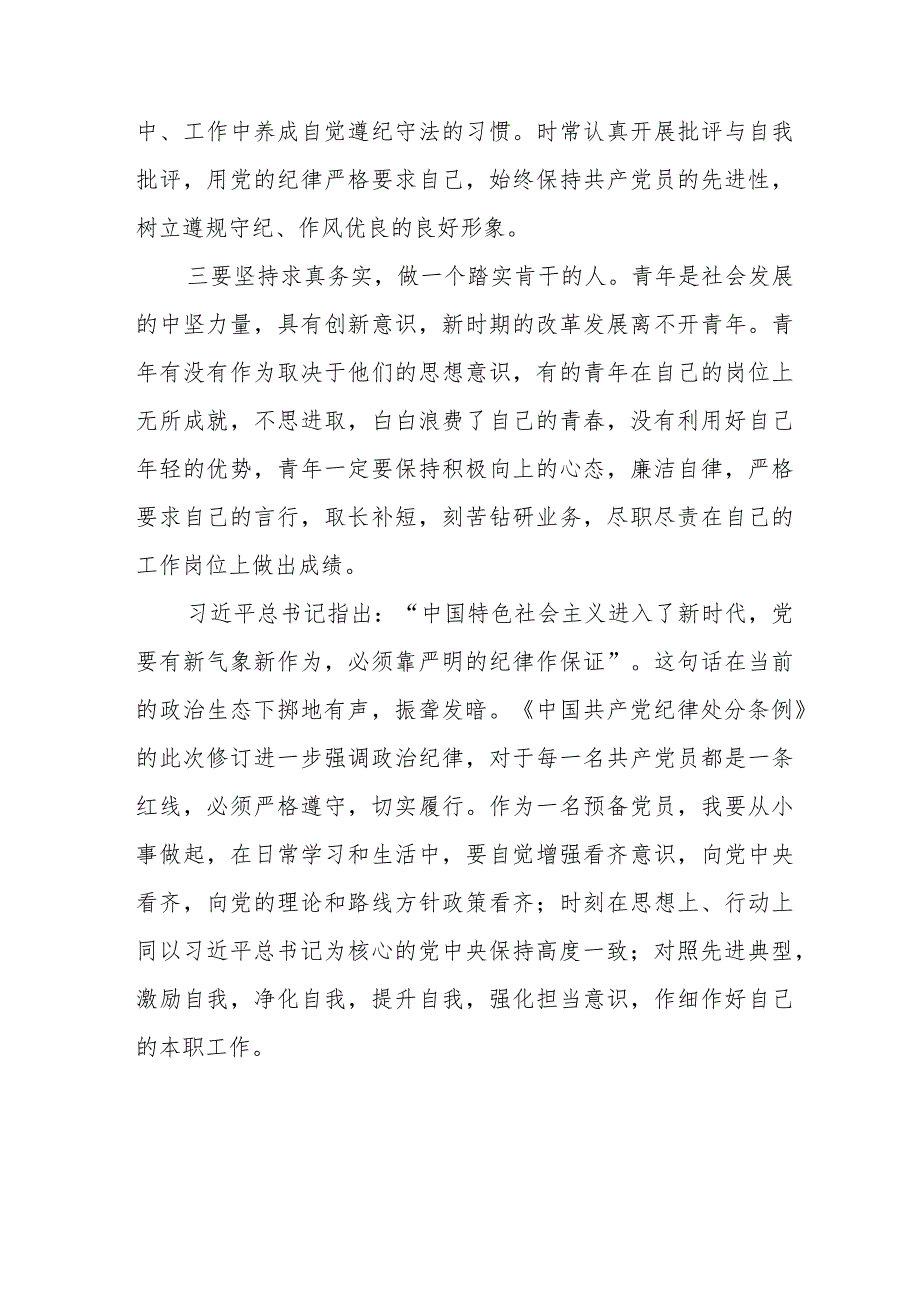 中、工作中养成自觉遵纪守法的习惯。时常认真开展批评与自我
批评，用党的纪律严格要求自己，始终保持共产党员的先进性，
树立遵规守纪、作风优良的良好形象。
三要坚持求真务实，做一个踏实肯干的人。青年是社会发展
的中坚力量，具有创新意识，新时期的改革发展离不开青年。青
年有没有作为取决于他们的思想意识，有的青年在自己的岗位上
无所成就，不思进取，白白浪费了自己的青春，没有利用好自己
年轻的优势，青年一定要保持积极向上的心态，廉洁自律，严格
要求自己的言行，取长补短，刻苦钻研业务，尽职尽责在自己的
工作岗位上做出成绩。
习近平总书记指出：“中国特色社会主义进入了新时代，党
要有新气象新作为，必须靠严明的纪律作保证”。这句话在当前
的政治生态下掷地有声，振聋发暗。《中国共产党纪律处分条例》
的此次修订进一步强调政治纪律，对于每一名共产党员都是一条
红线，必须严格遵守，切实履行。作为一名预备党员，我要从小
事做起，在日常学习和生活中，要自觉增强看齐意识，向党中央
看齐，向党的理论和路线方针政策看齐；时刻在思想上、行动上
同以习近平总书记为核心的党中央保持高度一致；对照先进典型，
激励自我，净化自我，提升自我，强化担当意识，作细作好自己
的本职工作。